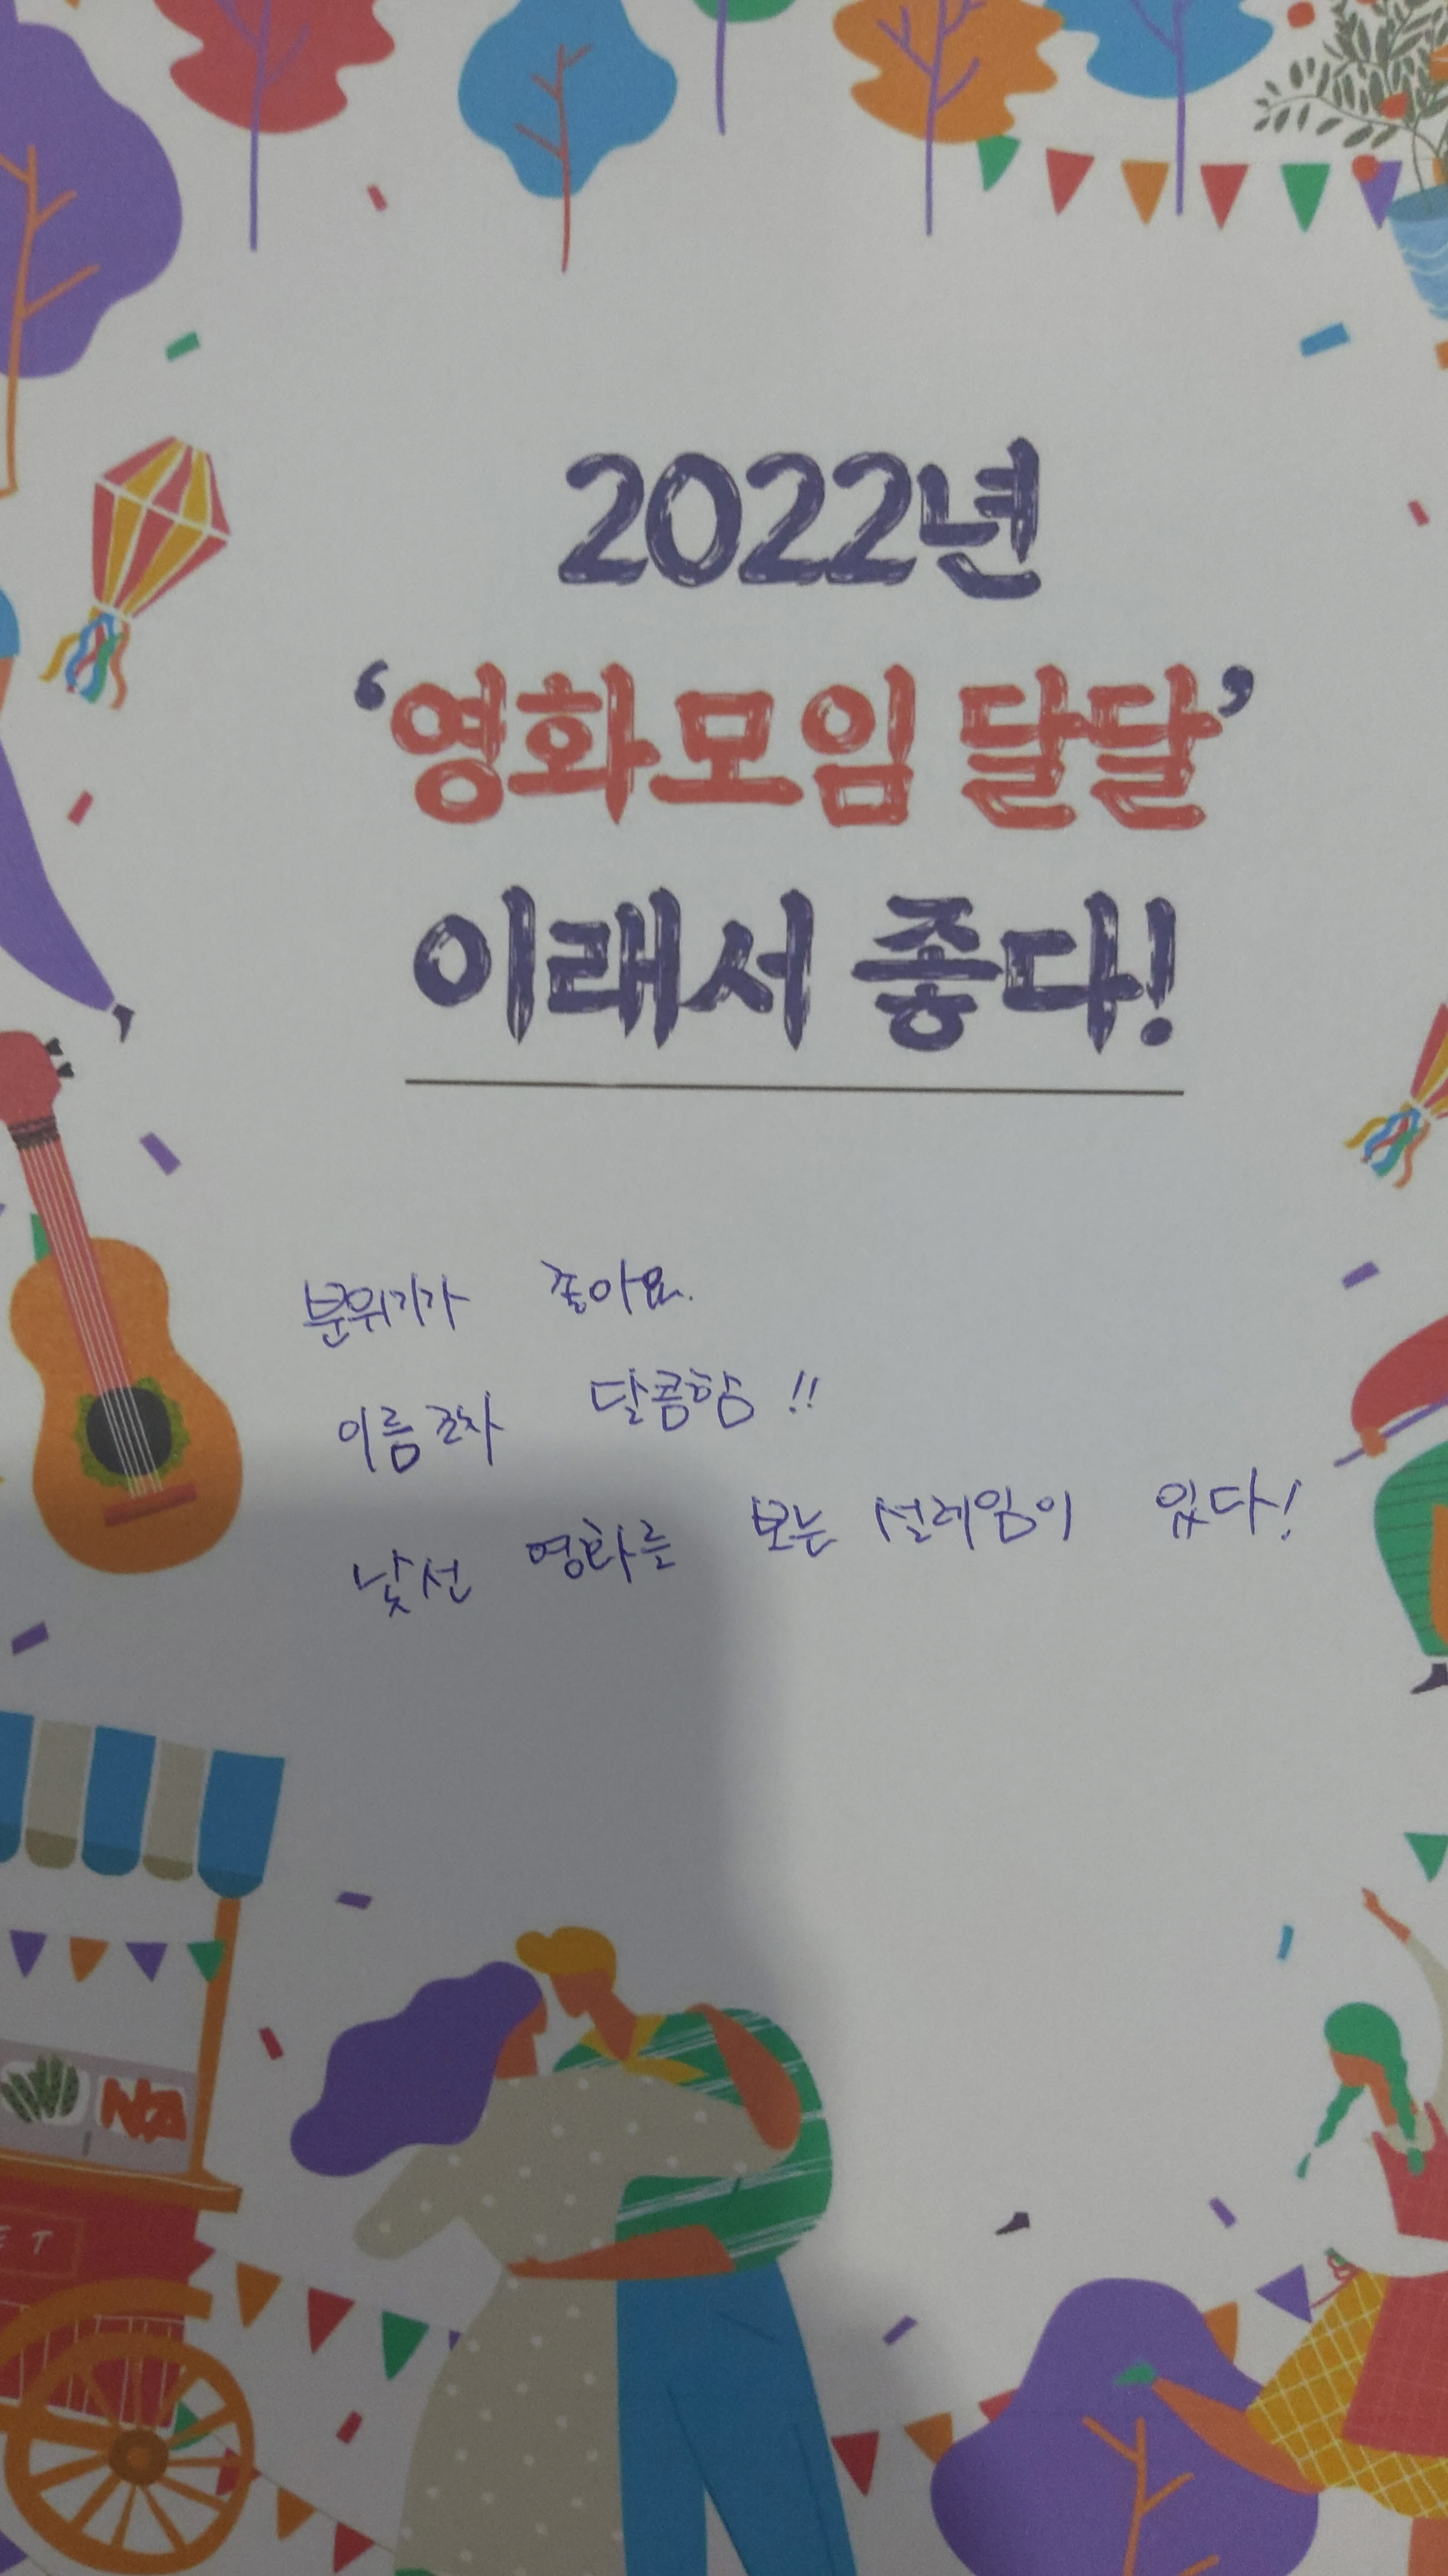 2022년
‘영화모임 달달’
이래서 좋다!
분위기가 좋아요.
이름조차 달콤함 !!
낯선 영화를 보는 설레임이 있다!
ET